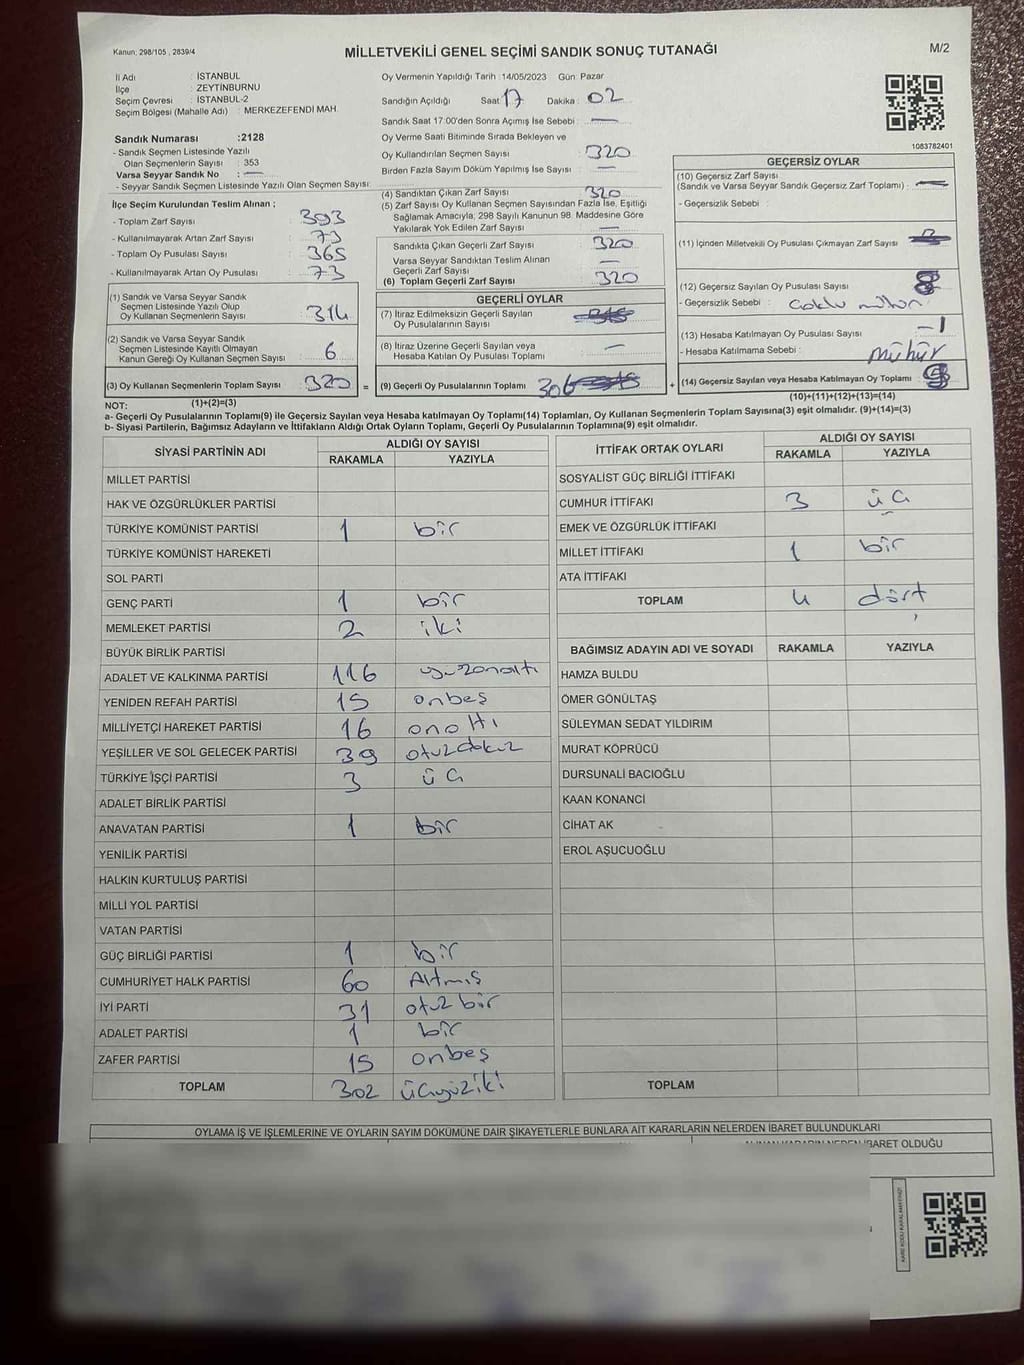 Kanun: 298/105 , 2839/4
MİLLETVEKİLİ GENEL SEÇİMİ SANDIK SONUÇ TUTANAĞI
M/2
İl Adı : İSTANBUL
İlçe : ZEYTİNBURNU
Seçim Çevresi : İSTANBUL-2
Seçim Bölgesi (Mahalle Adı) : MERKEZEFENDİ MAH.
Sandık Numarası :2128
- Sandık Seçmen Listesinde Yazılı
Olan Seçmenlerin Sayısı : 353
Varsa Seyyar Sandık No : —
- Seyyar Sandık Seçmen Listesinde Yazılı Olan Seçmen Sayısı:
İlçe Seçim Kurulundan Teslim Alınan ;
- Toplam Zarf Sayısı : 393
- Kullanılmayarak Artan Zarf Sayısı : 73
- Toplam Oy Pusulası Sayısı : 365
- Kullanılmayarak Artan Oy Pusulası : 73
(1) Sandık ve Varsa Seyyar Sandık
Seçmen Listesinde Yazılı Olup
Oy Kullanan Seçmenlerin Sayısı : 314
(2) Sandık ve Varsa Seyyar Sandık
Seçmen Listesinde Kayıtlı Olmayan
Kanun Gereği Oy Kullanan Seçmen Sayısı : 6
(3) Oy Kullanan Seçmenlerin Toplam Sayısı : 320 =
(1)+(2)=(3)
Oy Vermenin Yapıldığı Tarih :14/05/2023 Gün: Pazar
Sandığın Açıldığı Saat: 17 Dakika : 02
Sandık Saat 17:00'den Sonra Açımış İse Sebebi : —
Oy Verme Saati Bitiminde Sırada Bekleyen ve
Oy Kullandırılan Seçmen Sayısı : 320
Birden Fazla Sayım Döküm Yapılmış İse Sayısı : —
(4) Sandıktan Çıkan Zarf Sayısı : 320
(5) Zarf Sayısı Oy Kullanan Seçmen Sayısından Fazla İse, Eşitliği
Sağlamak Amacıyla, 298 Sayılı Kanunun 98. Maddesine Göre
Yakılarak Yok Edilen Zarf Sayısı : —
Sandıkta Çıkan Geçerli Zarf Sayısı : 320
Varsa Seyyar Sandıktan Teslim Alınan
Geçerli Zarf Sayısı : —
(6) Toplam Geçerli Zarf Sayısı : 320
GEÇERLİ OYLAR
(7) İtiraz Edilmeksizin Geçerli Sayılan
Oy Pusulalarının Sayısı :
(8) İtiraz Üzerine Geçerli Sayılan veya
Hesaba Katılan Oy Pusulası Toplamı : —
(9) Geçerli Oy Pusulalarının Toplamı : 306 +
1083782401
GEÇERSİZ OYLAR
(10) Geçersiz Zarf Sayısı
(Sandık ve Varsa Seyyar Sandık Geçersiz Zarf Toplamı) : —
- Geçersizlik Sebebi :
(11) İçinden Milletvekili Oy Pusulası Çıkmayan Zarf Sayısı :
(12) Geçersiz Sayılan Oy Pusulası Sayısı :
- Geçersizlik Sebebi :
(13) Hesaba Katılmayan Oy Pusulası Sayısı : -1
- Hesaba Katılmama Sebebi : mühür
(14) Geçersiz Sayılan veya Hesaba Katılmayan Oy Toplamı :
(10)+(11)+(12)+(13)=(14)
NOT:
a- Geçerli Oy Pusulalarının Toplamı(9) ile Geçersiz Sayılan veya Hesaba katılmayan Oy Toplamı(14) Toplamları, Oy Kullanan Seçmenlerin Toplam Sayısına(3) eşit olmalıdır. (9)+(14)=(3)
b- Siyasi Partilerin, Bağımsız Adayların ve İttifakların Aldığı Ortak Oyların Toplamı, Geçerli Oy Pusulalarının Toplamına(9) eşit olmalıdır.
SİYASİ PARTİNİN ADI
ALDIĞI OY SAYISI
RAKAMLA YAZIYLA
MİLLET PARTİSİ
HAK VE ÖZGÜRLÜKLER PARTİSİ
TÜRKİYE KOMÜNİST PARTİSİ 1 bir
TÜRKİYE KOMÜNİST HAREKETİ
SOL PARTİ
GENÇ PARTİ 1 bir
MEMLEKET PARTİSİ 2 iki
BÜYÜK BİRLİK PARTİSİ
ADALET VE KALKINMA PARTİSİ 116 yüzonaltı
YENİDEN REFAH PARTİSİ 15 onbeş
MİLLİYETÇİ HAREKET PARTİSİ 16 onaltı
YEŞİLLER VE SOL GELECEK PARTİSİ 39 otuzdokuz
TÜRKİYE İŞÇİ PARTİSİ 3 üç
ADALET BİRLİK PARTİSİ
ANAVATAN PARTİSİ 1 bir
YENİLİK PARTİSİ
HALKIN KURTULUŞ PARTİSİ
MİLLİ YOL PARTİSİ
VATAN PARTİSİ
GÜÇ BİRLİĞİ PARTİSİ 1 bir
CUMHURİYET HALK PARTİSİ 60 Altmış
İYİ PARTİ 31 otuz bir
ADALET PARTİSİ 1 bir
ZAFER PARTİSİ 15 onbeş
TOPLAM 302 üçyüziki
İTTİFAK ORTAK OYLARI
ALDIĞI OY SAYISI
RAKAMLA YAZIYLA
SOSYALİST GÜÇ BİRLİĞİ İTTİFAKI
CUMHUR İTTİFAKI 3 üç
EMEK VE ÖZGÜRLÜK İTTİFAKI
MİLLET İTTİFAKI 1 bir
ATA İTTİFAKI
TOPLAM 4 dört
BAĞIMSIZ ADAYIN ADI VE SOYADI RAKAMLA YAZIYLA
HAMZA BULDU
ÖMER GÖNÜLTAŞ
SÜLEYMAN SEDAT YILDIRIM
MURAT KÖPRÜCÜ
DURSUNALİ BACIOĞLU
KAAN KONANCİ
CİHAT AK
EROL AŞUCUOĞLU
TOPLAM
OYLAMA İŞ VE İŞLEMLERİNE VE OYLARIN SAYIM DÖKÜMÜNE DAİR ŞİKAYETLERLE BUNLARA AİT KARARLARIN NELERDEN İBARET BULUNDUKLARI
İBARET OLDUĞU